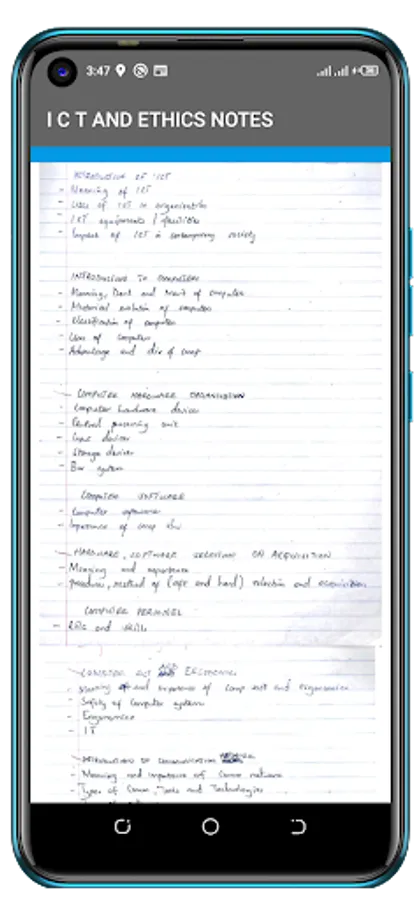 3:47
I C T AND ETHICS NOTES
INTRODUCTION OF ICT
- Meaning of ICT
- Uses of ICT in organisation
- ICT equipments / facilities
- Impact of ICT in contemporary society
INTRODUCTION TO COMPUTERS
- Meaning, and of computer
- Historical evolution of computers
- Classification of computer
- Uses of computer
- Advantage and dis of comp
COMPUTER HARDWARE ORGANISATION
- Computer hardware devices
- Central processing unit
- Input devices
- Storage devices
- Bus system
COMPUTER SOFTWARE
- Computer software
- Importance of comp s/w
HARDWARE, SOFTWARE SELECTION OR ACQUISITION
- Meaning and importance
- procedures, method of (soft and hard) selection and acquisition
COMPUTER PERSONNEL
- Role and skills
- Meaning and importance of comp and Ergonomics
- Safety of computer system
- Ergonomics
- IT
INTRODUCTION OF COMMUNICATION
- Meaning and importance of Comm network
- Types of Comm, Tools and Technologies